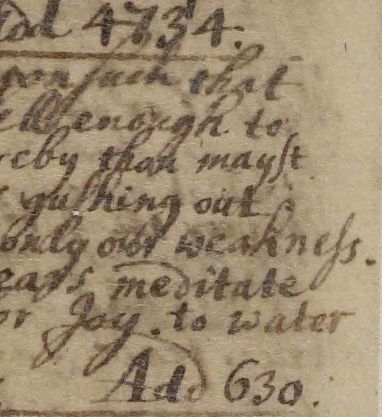 Add 4734.
upon such that
well enough to
reby thou mayſt
gushing out
only our weakneſs.
ears meditate
or Joy. to water
Add 630.